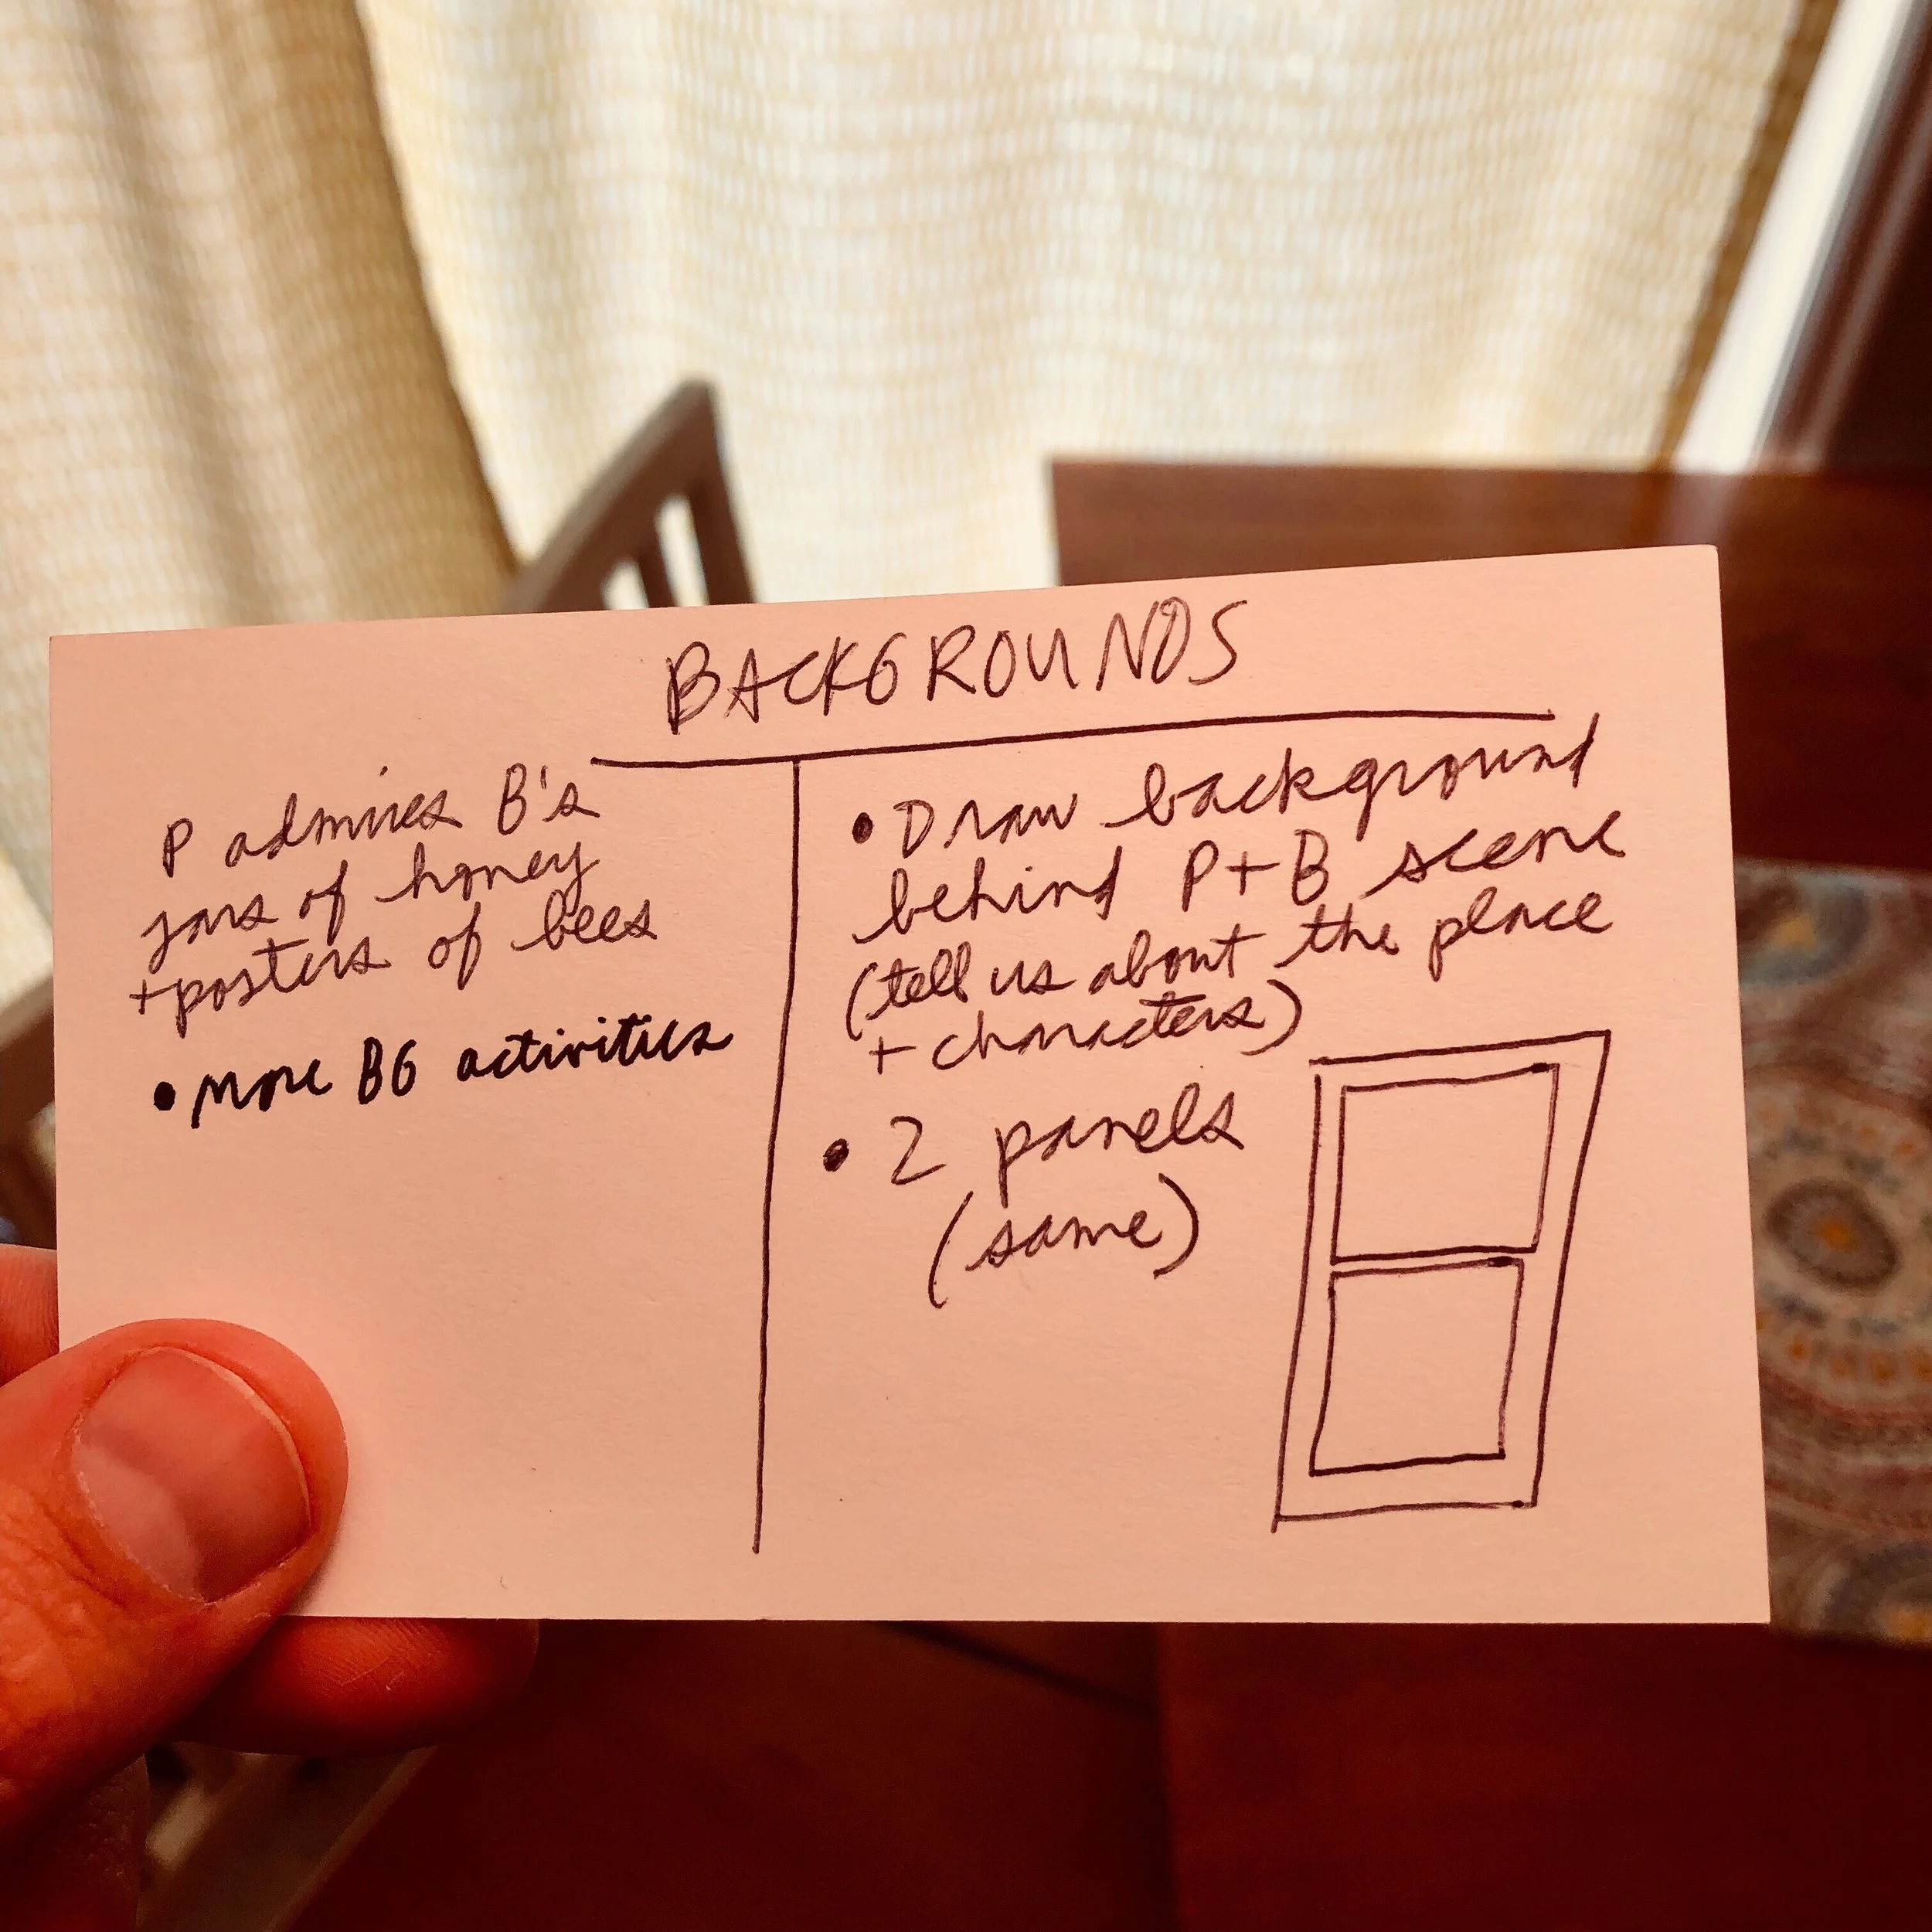 BACKGROUNDS
P admires B's
jars of honey
+posters of bees
• more BG activities
• Draw background
behind P+B scene
(tell us about the place
+ characters)
• 2 panels
(same)